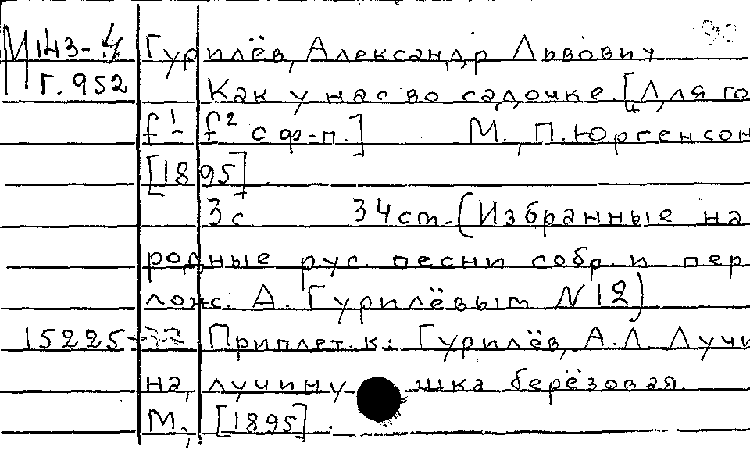 М143-4 Гурилёв, Александр Львович
Г. 952 Как у нас во садочке. [Для го
f¹- f² с ф-п.] М., П. Юргенсон
[1895]
3 с. 34 cm. (Избранные на
родные рус. песни собр. и пер
лож. А. Гурилёвым N 12)
15225-77 Приплет. к: Гурилёв, А. Л. Лучи
на, лучинушка берёзовая.
М., [1895].